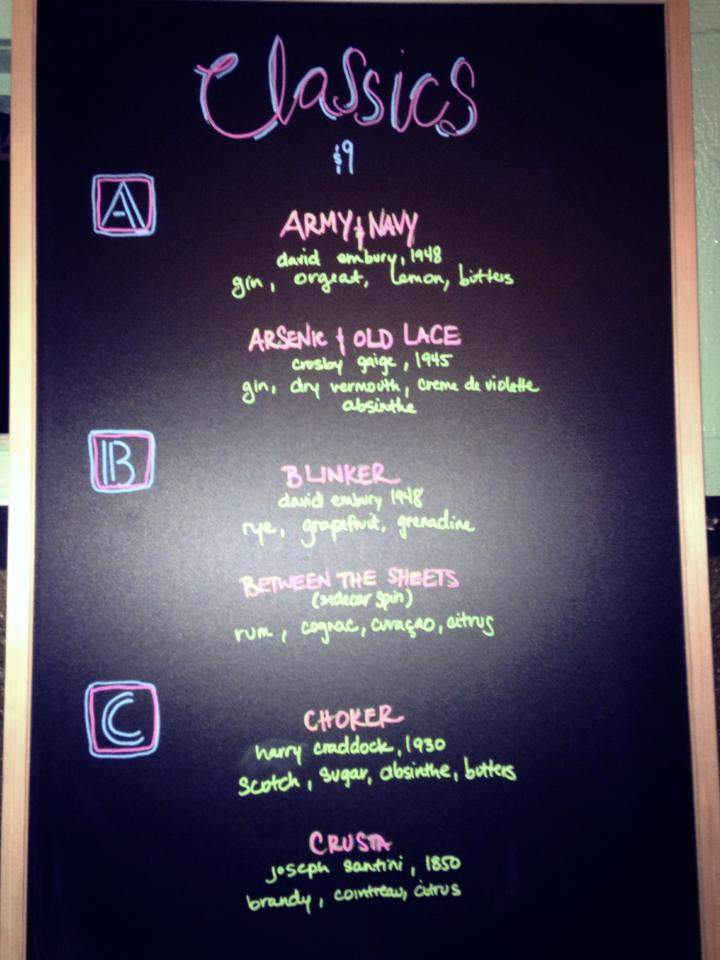 Classics
$9
A
ARMY & NAVY
david embury, 1948
gin, orgeat, lemon, bitters
ARSENIC & OLD LACE
crosby gaige, 1945
gin, dry vermouth, creme de violette
absinthe
B
BLINKER
david embury 1948
rye, grapefruit, grenadine
BETWEEN THE SHEETS
(sidecar spin)
rum, cognac, curaçao, citrus
C
CHOKER
harry craddock, 1930
scotch, sugar, absinthe, bitters
CRUSTA
joseph santini, 1850
brandy, cointreau, citrus